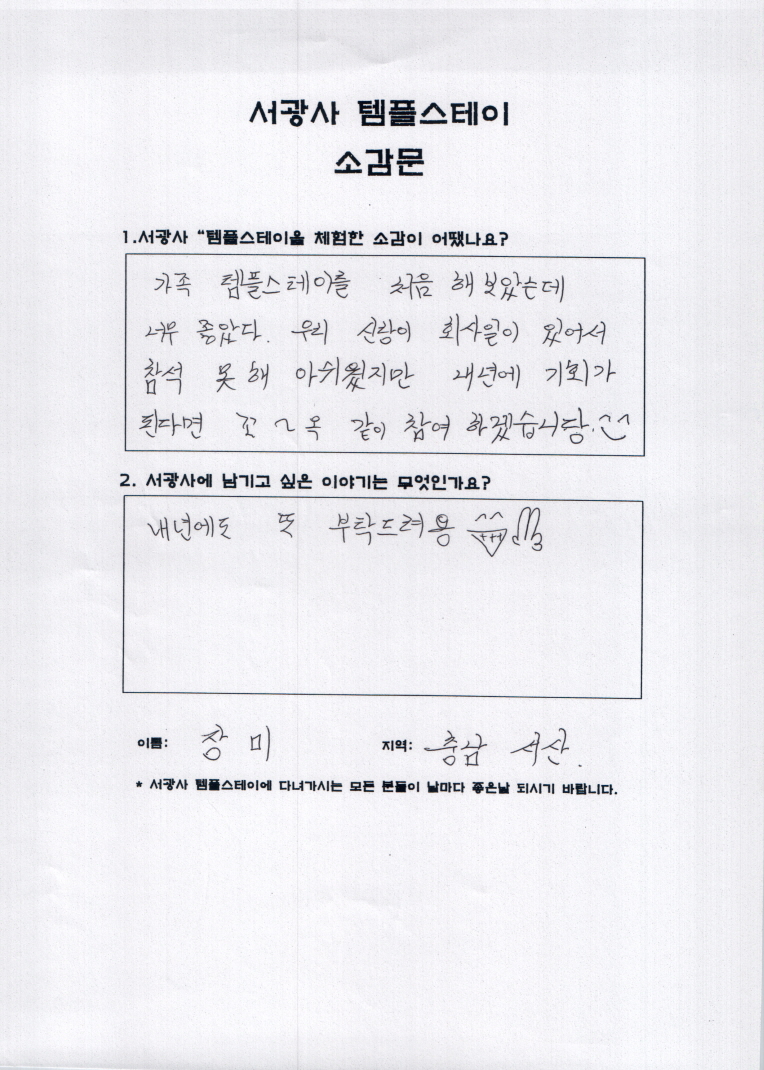 서광사 템플스테이
소감문
1.서광사 “템플스테이을 체험한 소감이 어땠나요?
가족 템플스테이를 처음 해보았는데
너무 좋았다. 우리 신랑이 회사일이 있어서
참석 못해 아쉬웠지만 내년에 기회가
된다면 꼬~옥 같이 참여 하겠습니당.^^
2. 서광사에 남기고 싶은 이야기는 무엇인가요?
내년에도 또 부탁드려용
이름: 장미 지역: 충남 서산.
* 서광사 템플스테이에 다녀가시는 모든 분들이 날마다 좋은날 되시기 바랍니다.